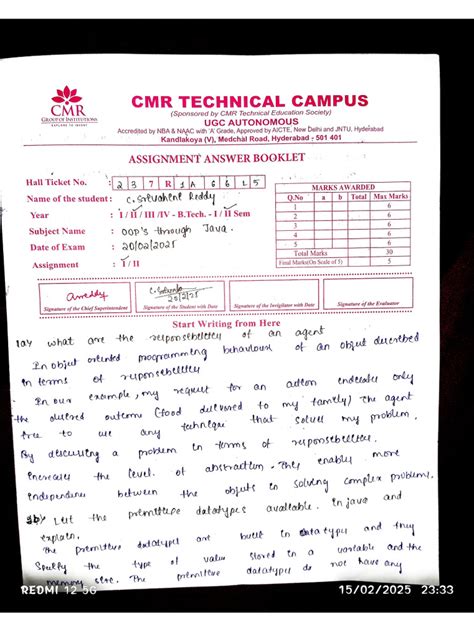 CMR
GROUP OF INSTITUTIONS
EXPLORE TO INVENT
CMR TECHNICAL CAMPUS
(Sponsored by CMR Technical Education Society)
UGC AUTONOMOUS
Accredited by NBA & NAAC with 'A' Grade, Approved by AICTE, New Delhi and JNTU, Hyderabad
Kandlakoya (V), Medchal Road, Hyderabad - 501 401
ASSIGNMENT ANSWER BOOKLET
Hall Ticket No. : 2 3 7 R 1 A 6 6 1 5
Name of the student : C. Reddy
Year : I / II / III / IV - B.Tech. - I / II Sem
Subject Name : OOP's through Java.
Date of Exam : 20/02/2025
Assignment : I / II
MARKS AWARDED
Q.No a b Total Max Marks
1 6
2 6
3 6
4 6
5 6
Total Marks 30
Final Marks(On Scale of 5) 5
Signature of the Chief Superintendent
Signature of the Student with Date
Signature of the Invigilator with Date
Signature of the Evaluator
Start Writing from Here
1a) what are the responsibility of an agent
In object oriented programming behaviour of an object described
in terms of responsibility
In our example, my request for an action indicates only
the desired outcome (food delivered to my family) The agent
free to use any technique that solves my problem.
By discussing a problem in terms of responsibilities.
increases the level of abstraction. They enables more
independence between the objects in solving complex problem.
1b) List the primitive datatypes available. in java and
explain.
The primitive datatypes are built in Data types and they
Specify the type of value stored in a variable and the
memory size. The primitive datatypes do not have any
REDMI 12 5G
15/02/2025 23:33